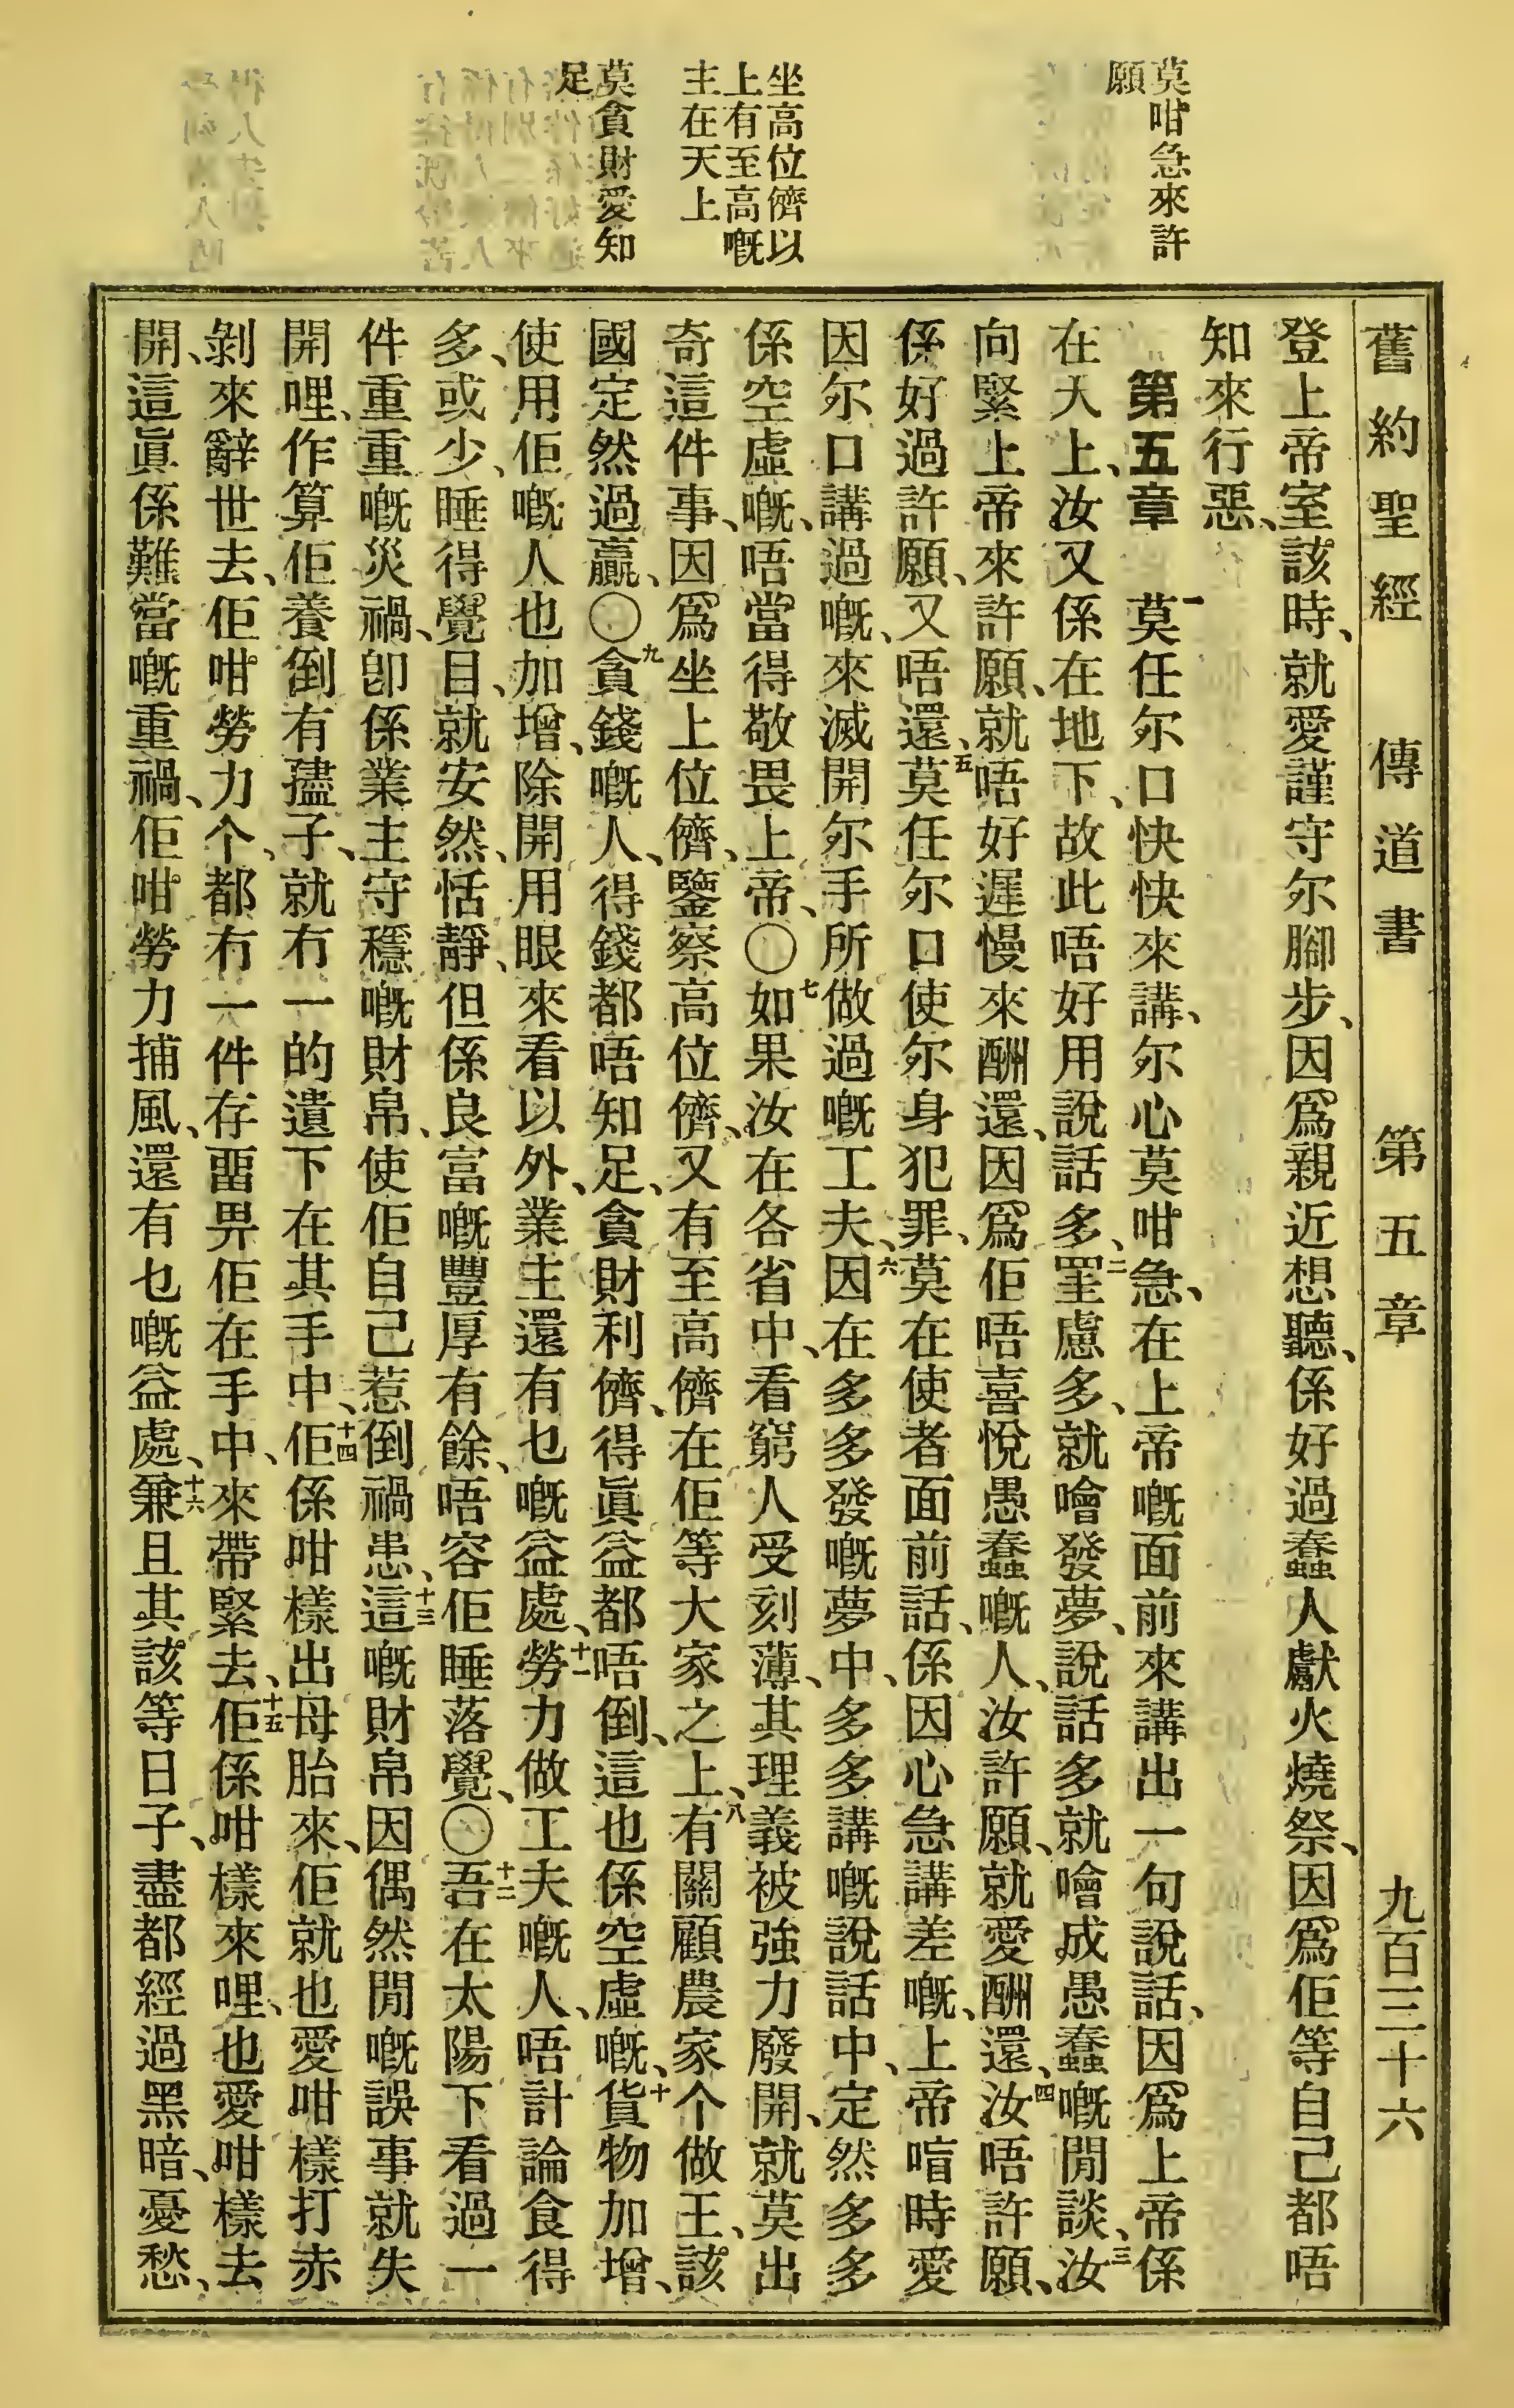 莫咁急來許
願
坐高位儕以
上有至高嘅
主在天上
莫貪財愛知
足
舊約聖經 傳道書 第五章 九百三十六
登上帝室該時、就愛謹守尔腳步、因爲親近想聽、係好過蠢人獻火燒祭、因爲佢等自己都唔
知來行惡、
第五章 一莫任尔口快快來講、尔心莫咁急、在上帝嘅面前來講出一句說話、因爲上帝係
在天上、汝又係在地下、故此唔好用說話多、二罣慮多、就噲發夢、說話多就噲成愚蠢嘅閒談、三汝
向緊上帝來許願、就唔好遲慢來酬還、因爲佢唔喜悅愚蠢嘅人、汝許願、就愛酬還、四汝唔許願、
係好過許願、又唔還、五莫任尔口使尔身犯罪、莫在使者面前話、係因心急講差嘅、上帝喧時愛
因尔口講過嘅、來滅開尔手所做過嘅工夫、六因在多多發嘅夢中、多多講嘅說話中、定然多多
係空虛嘅、唔當得敬畏上帝、〇七如果汝在各省中、看窮人受刻薄、其理義被強力廢開、就莫出
奇這件事、因爲坐上位儕、鑒察高位儕、又有至高儕在佢等大家之上、八有關顧農家个做王、該
國定然過贏、〇九貪錢嘅人、得錢都唔知足、貪財利儕、得眞益都唔倒、這也係空虛嘅、十貨物加增、
使用佢嘅人也加增、除開用眼來看以外、業主還有乜嘅益處、十一勞力做工夫嘅人、唔計論食得
多、或少、睡得覺目、就安然、恬靜、但係良富嘅豐厚有餘、唔容佢睡落覺、〇十二吾在太陽下看過一
件重重嘅災禍、卽係業主守穩嘅財帛、使佢自己惹倒禍患、十三這嘅財帛因偶然閒嘅誤事就失
開哩、作算佢養倒有孻子、就冇一的遺下在其手中、十四佢係咁樣出母胎來、佢就也愛咁樣打赤
剝來辭世去、佢咁勞力个、都冇一件存畱畀佢在手中、來帶緊去、十五佢係咁樣來哩、也愛咁樣去
開、這眞係難當嘅重禍、佢咁勞力捕風、還有乜嘅益處、十六兼且其該等日子、盡都經過黑暗、憂愁、